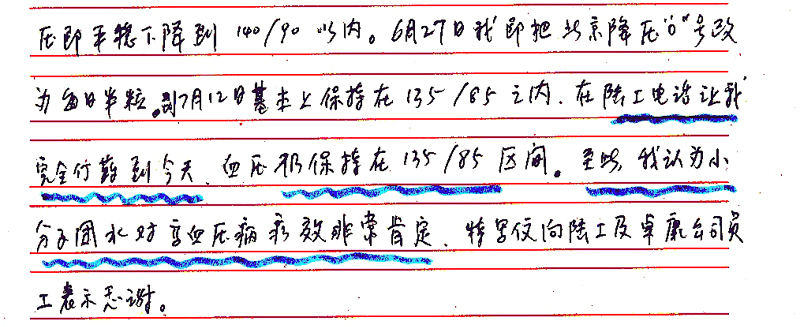 压即平稳下降到140/90以内。6月27日我即把北京降压"0"号改
为每日半粒。到7月12日基本上保持在135/85之内、在陆工电话让我
完全停药到今天、血压仍保持在135/85区间。至此,我认为小
分子团水对高血压病疗效非常肯定、特写信向陆工及卓康公司员
工表示感谢。